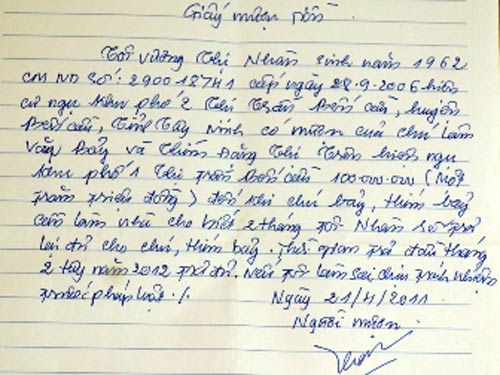 Giấy mượn tiền.
Tôi Vương Thị Nhàn sinh năm 1962
CMND số: 290018741 cấp ngày 28.9.2006 hiện
cư ngụ khu phố 2 Thị Trấn Bến Cầu, huyện
Bến Cầu, Tỉnh Tây Ninh có mượn của chú Lâm
Văn Bảy và Thím Đặng Thị hiện ngụ
khu phố 1 thị trấn Bến Cầu 100.000.000 (Một
trăm triệu đồng) đến khi chú bảy, thím bảy
cần làm nhà cho biết 2 tháng tôi Nhàn sẽ trả
lại đủ cho chú, thím bảy. Thời gian trả đầu tháng
2 tây năm 2012 trả đủ. Nếu tôi làm sai chịu trách nhiệm
trước pháp luật ./.
Ngày 21/4/2011
Người mượn